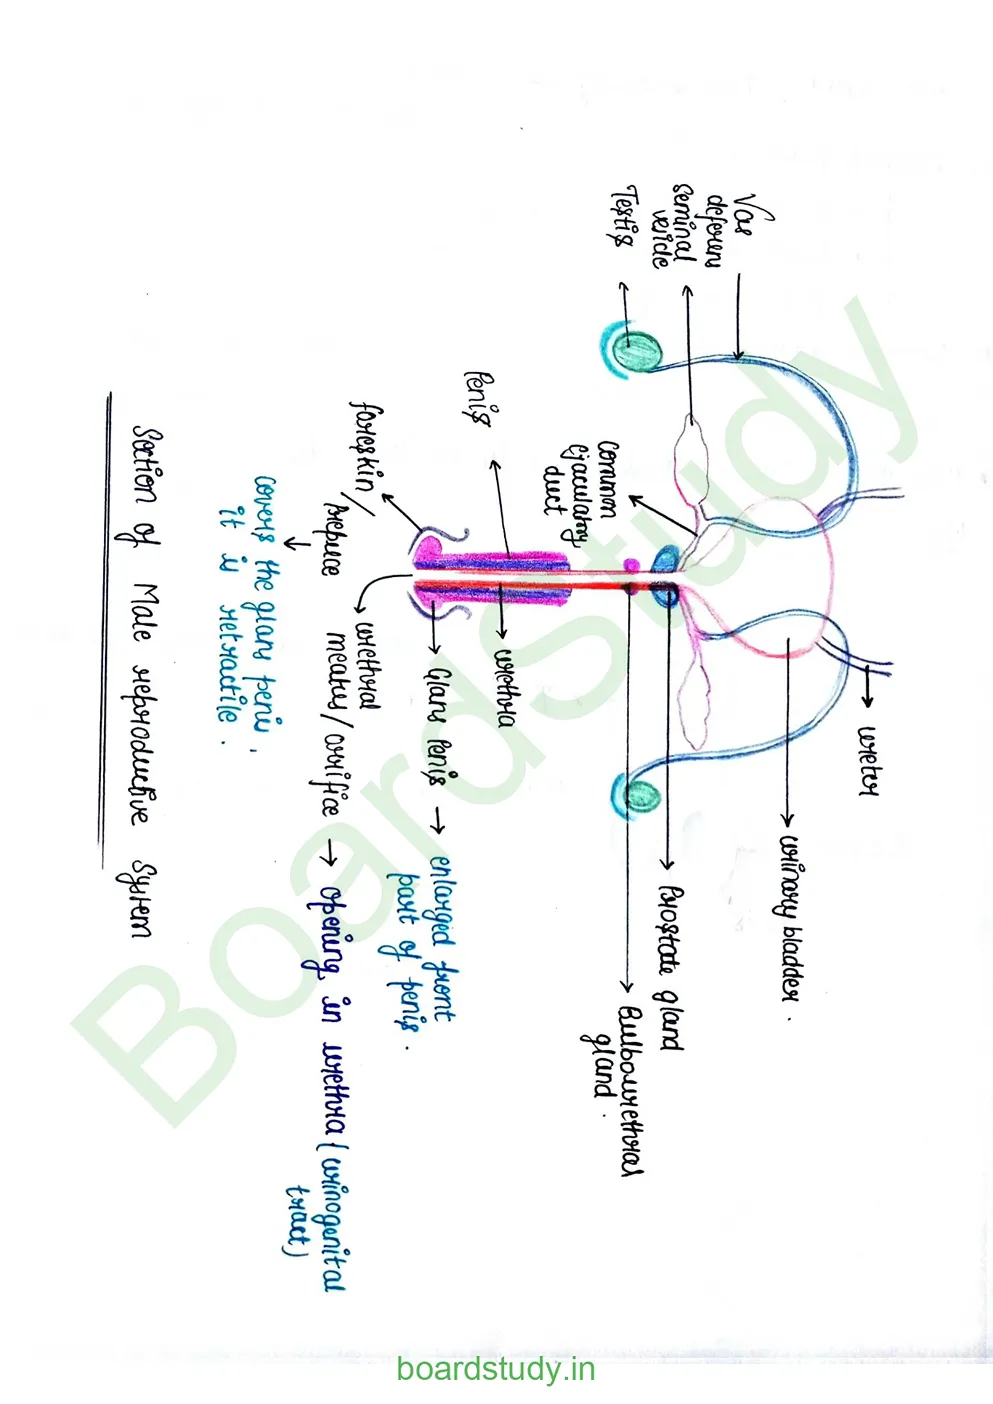 ureter
urinary bladder.
Vas
deferens
seminal
vesicle
Testis
Prostate gland
Bulbourethral
gland.
common
ejaculatory
duct
Penis
urethra
Glans Penis → enlarged front
part of penis.
foreskin/
prepuce
urethral
meatus/orrifice → opening in urethra (urinogenital
tract)
covers the glans penis,
it is retractile.
Section of Male reproductive System
BoardStudy
boardstudy.in